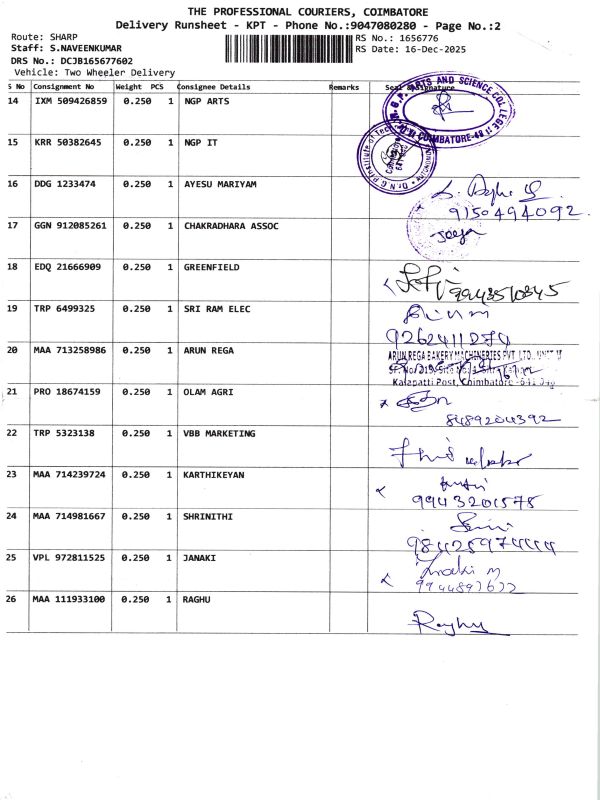 THE PROFESSIONAL COURIERS, COIMBATORE
Delivery Runsheet - KPT - Phone No.:9047080280 - Page No.:2
Route: SHARP
Staff: S.NAVEENKUMAR
DRS No.: DCJB165677602
Vehicle: Two Wheeler Delivery
RS No.: 1656776
RS Date: 16-Dec-2025
S No Consignment No Weight PCS Consignee Details Remarks Seal & Signature
14 IXM 509426859 0.250 1 NGP ARTS
ARTS AND SCIENCE COLLEGE
COIMBATORE-48
15 KRR 50382645 0.250 1 NGP IT
Dr.N.G.P.Institute of Technology
16 DDG 1233474 0.250 1 AYESU MARIYAM
9150494092
17 GGN 912085261 0.250 1 CHAKRADHARA ASSOC
18 EDQ 21666909 0.250 1 GREENFIELD
9943510345
19 TRP 6499325 0.250 1 SRI RAM ELEC
9262411279
20 MAA 713258986 0.250 1 ARUN REGA
ARUN REGA BAKERY MACHINERIES PVT. LTD., UNIT
Kalapatti Post, Coimbatore
21 PRO 18674159 0.250 1 OLAM AGRI
8489204392
22 TRP 5323138 0.250 1 VBB MARKETING
23 MAA 714239724 0.250 1 KARTHIKEYAN
9943201575
24 MAA 714981667 0.250 1 SHRINITHI
25 VPL 972811525 0.250 1 JANAKI
Janaki M
26 MAA 111933100 0.250 1 RAGHU
Raghu